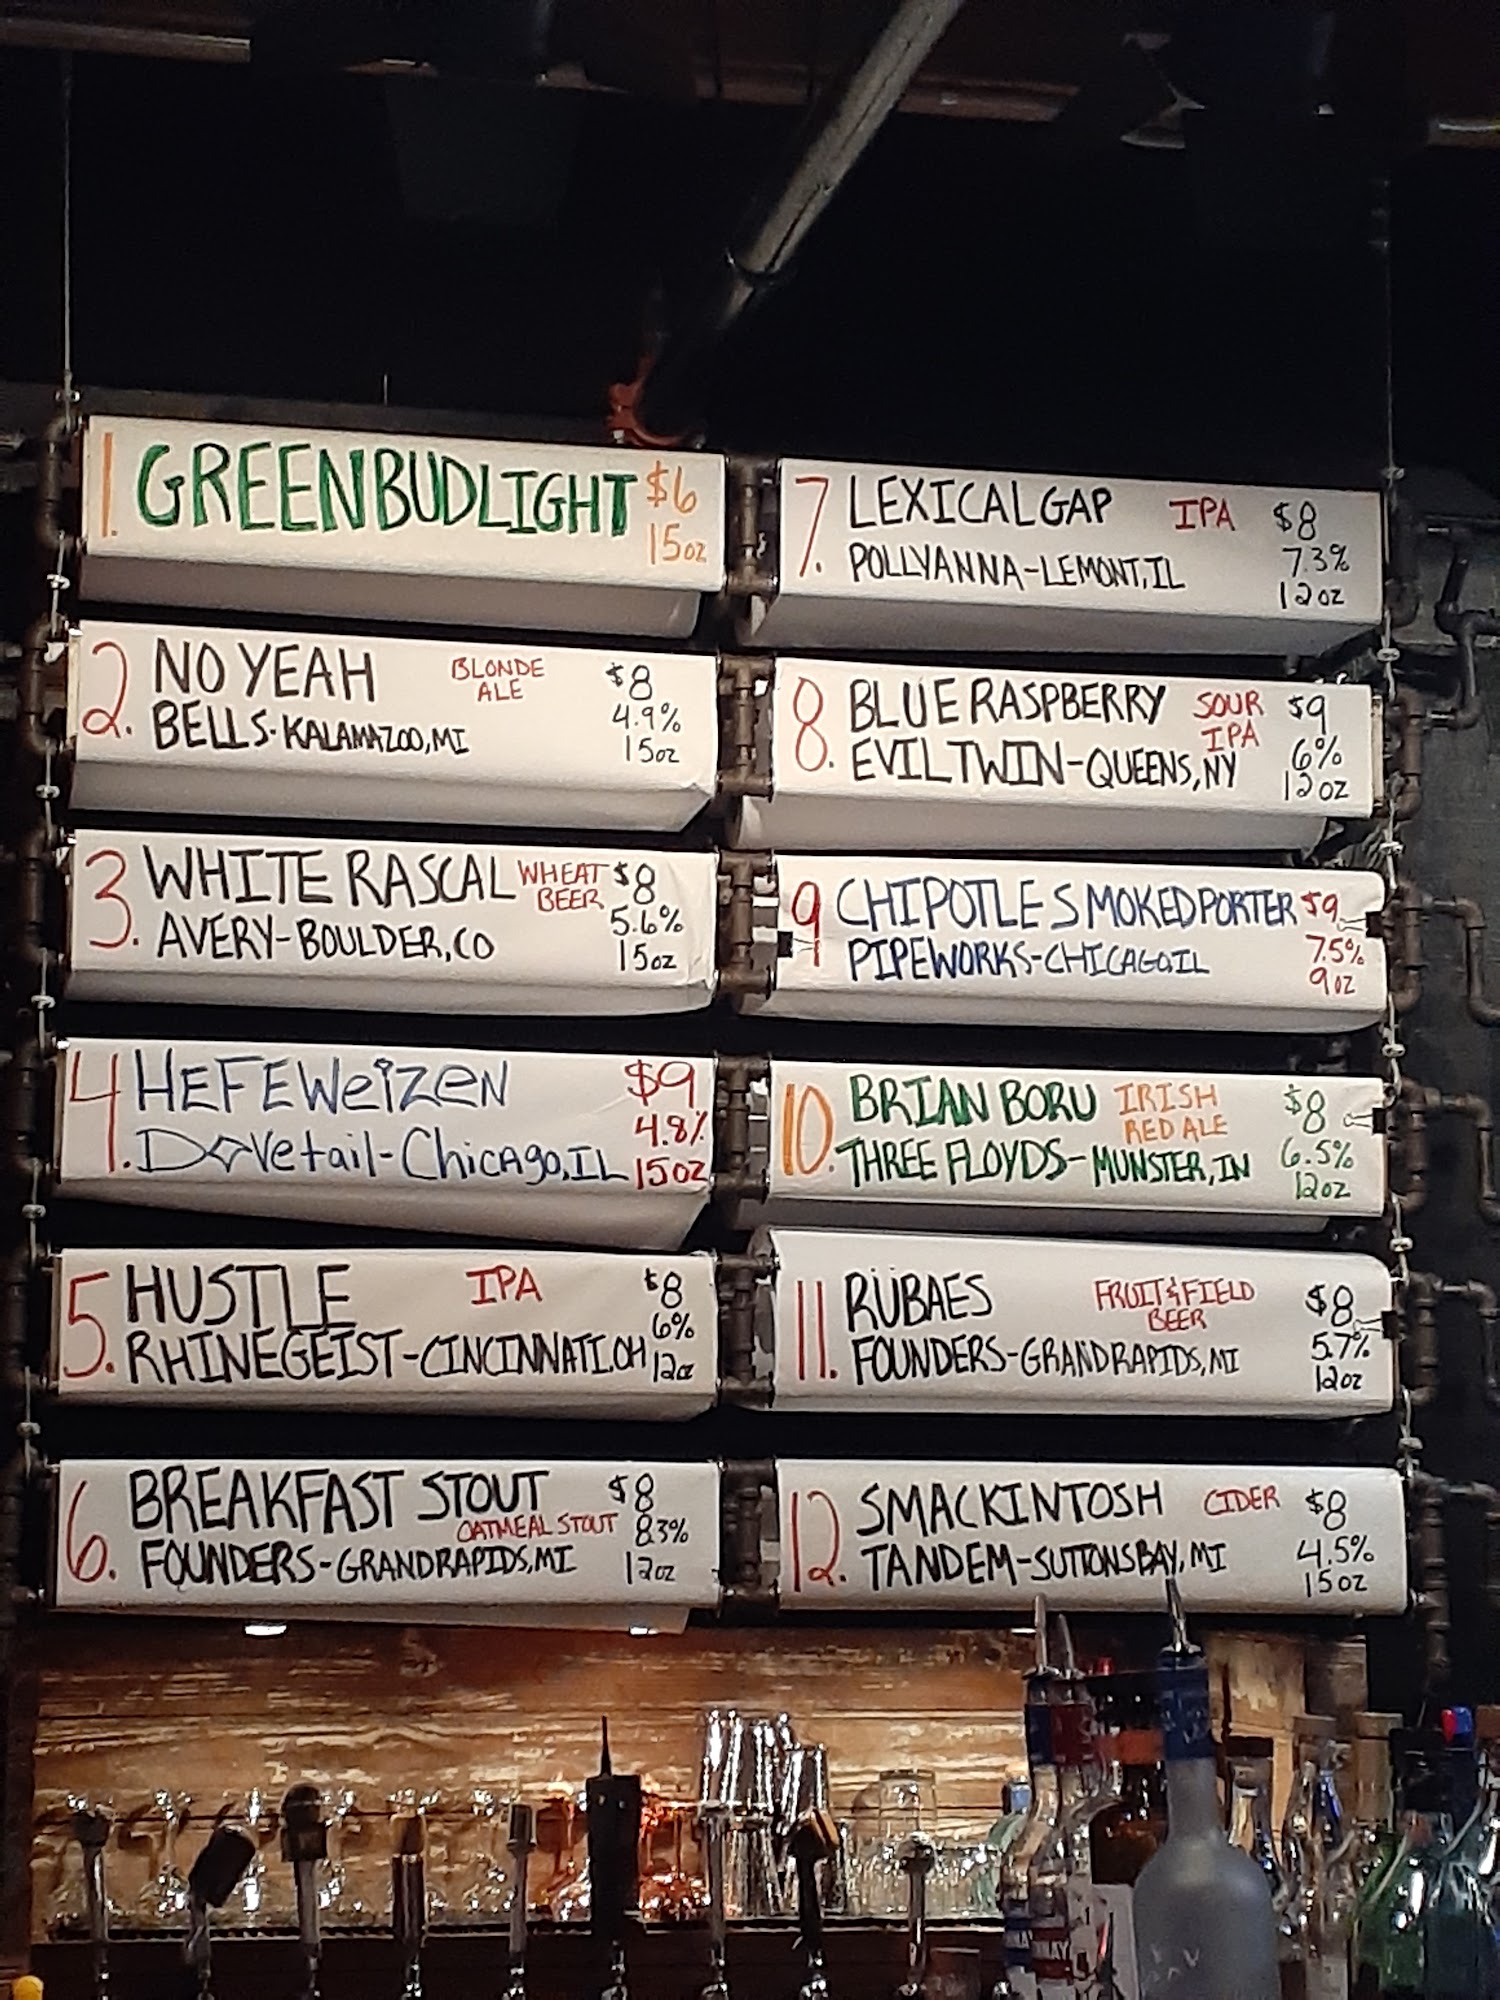 1. GREEN BUD LIGHT $6
15oz
2. NO YEAH BLONDE ALE $8
BELLS-KALAMAZOO, MI 4.9%
15oz
3. WHITE RASCAL WHEAT BEER $8
AVERY-BOULDER, CO 5.6%
15oz
4. HEFEWEIZEN $9
Dovetail-Chicago, IL 4.8%
15oz
5. HUSTLE IPA $8
RHINEGEIST-CINCINNATI, OH 6%
12oz
6. BREAKFAST STOUT $8
OATMEAL STOUT 8.3%
FOUNDERS-GRAND RAPIDS, MI 12oz
7. LEXICAL GAP IPA $8
POLLYANNA-LEMONT, IL 7.3%
12oz
8. BLUE RASPBERRY SOUR IPA $9
EVIL TWIN-QUEENS, NY 6%
12oz
9 CHIPOTLE SMOKED PORTER $9
PIPEWORKS-CHICAGO, IL 7.5%
9oz
10. BRIAN BORU IRISH RED ALE $8
THREE FLOYDS-MUNSTER, IN 6.5%
12oz
11. RÜBAES FRUIT & FIELD BEER $8
FOUNDERS-GRAND RAPIDS, MI 5.7%
12oz
12. SMACKINTOSH CIDER $8
TANDEM-SUTTONS BAY, MI 4.5%
15oz